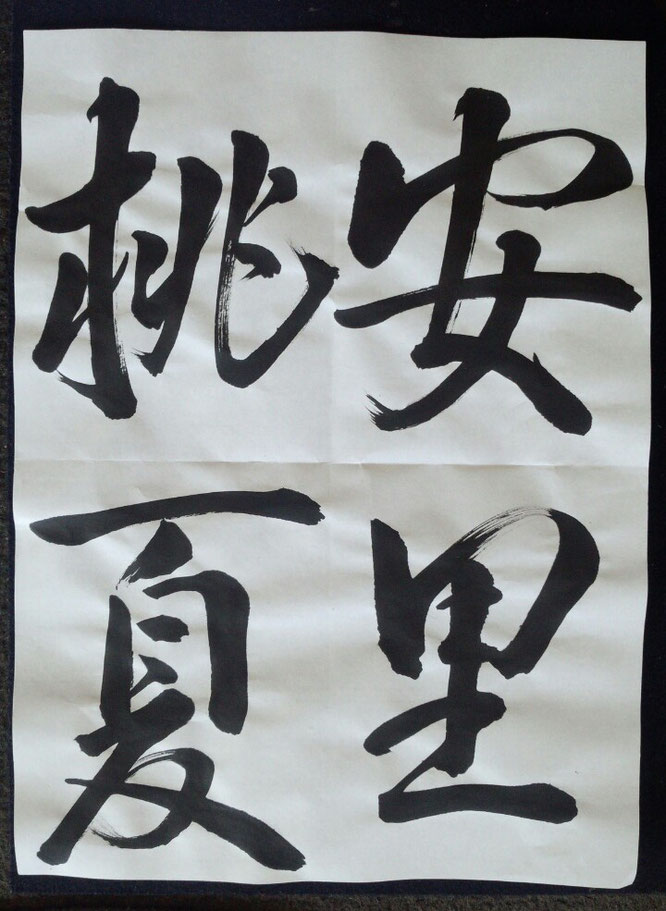 安里
桃夏